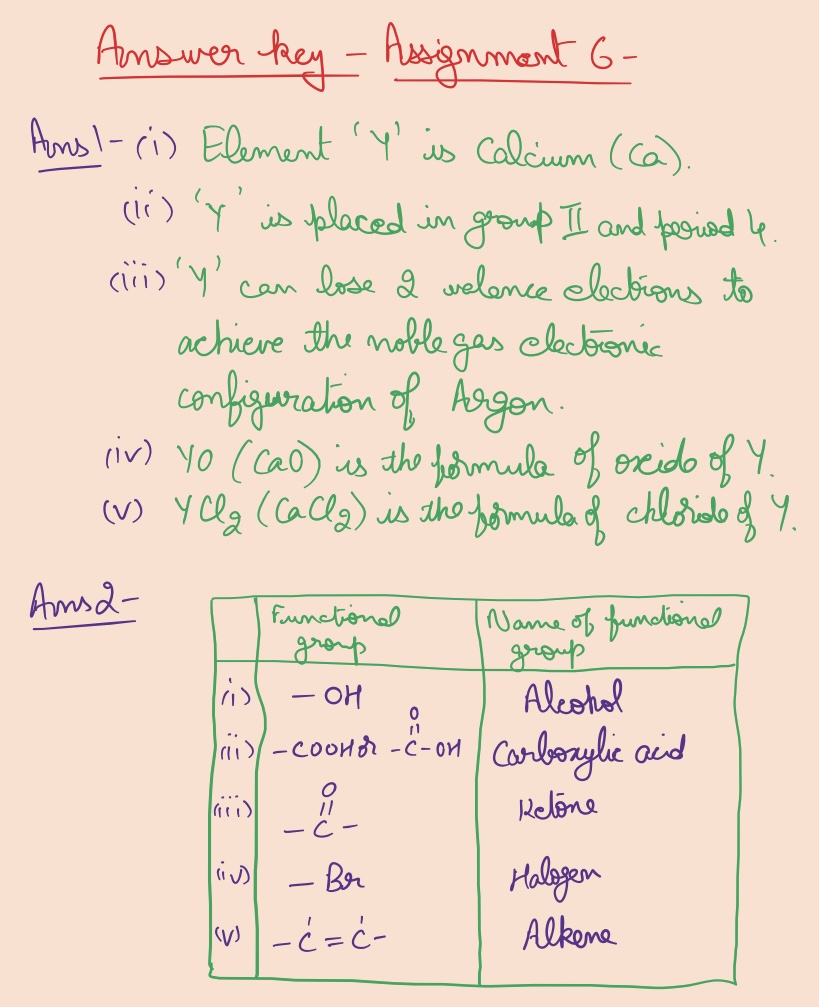 Answer key - Assignment 6-
Ans1- (i) Element 'Y' is Calcium (Ca).
(ii) 'Y' is placed in group II and period 4.
(iii) 'Y' can lose 2 valence electrons to
achieve the noble gas electronic
configuration of Argon.
(iv) YO (CaO) is the formula of oxide of Y.
(v) YCl₂ (CaCl₂) is the formula of chloride of Y.
Ans2-
Functional group | Name of functional group
(i) -OH Alcohol
O
(ii) -COOH or -C-OH Carboxylic acid
O
(iii) -C- Ketone
(iv) -Br Halogen
(v) -C=C- Alkene